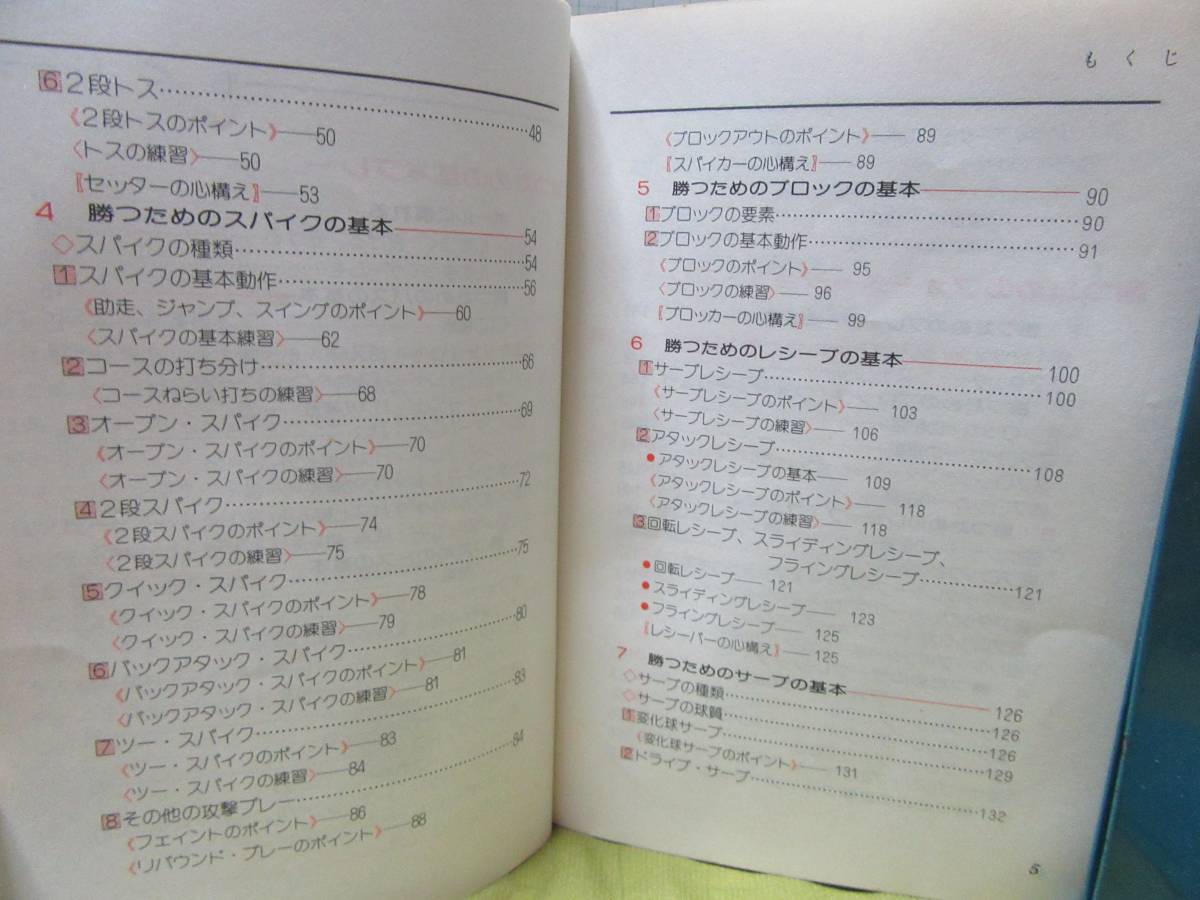 6 2段トス……48
《2段トスのポイント》——50
〈トスの練習〉——50
〖セッターの心構え〗——53
4 勝つためのスパイクの基本——54
◇スパイクの種類……54
1 スパイクの基本動作……56
《助走、ジャンプ、スイングのポイント》——60
〈スパイクの基本練習〉——62
2 コースの打ち分け……66
〈コースねらい打ちの練習〉——68
3 オープン・スパイク……69
《オープン・スパイクのポイント》——70
〈オープン・スパイクの練習〉——70
4 2段スパイク……72
《2段スパイクのポイント》——74
〈2段スパイクの練習〉——75
5 クイック・スパイク……75
《クイック・スパイクのポイント》——78
〈クイック・スパイクの練習〉——79
6 バックアタック・スパイク……80
《バックアタック・スパイクのポイント》——81
〈バックアタック・スパイクの練習〉——81
7 ツー・スパイク……83
《ツー・スパイクのポイント》——83
〈ツー・スパイクの練習〉——84
8 その他の攻撃プレー……84
《フェイントのポイント》——86
《リバウンド・プレーのポイント》——88
もくじ
《ブロックアウトのポイント》——89
〖スパイカーの心構え〗——89
5 勝つためのブロックの基本——90
1 ブロックの要素……90
2 ブロックの基本動作……91
《ブロックのポイント》——95
〈ブロックの練習〉——96
〖ブロッカーの心構え〗——99
6 勝つためのレシーブの基本——100
1 サーブレシーブ……100
《サーブレシーブのポイント》——103
〈サーブレシーブの練習〉——106
2 アタックレシーブ……108
●アタックレシーブの基本——109
《アタックレシーブのポイント》——118
〈アタックレシーブの練習〉——118
3 回転レシーブ、スライディングレシーブ、
フライングレシーブ……121
●回転レシーブ——121
●スライディングレシーブ——123
●フライングレシーブ——125
〖レシーバーの心構え〗——125
7 勝つためのサーブの基本——126
◇サーブの種類……126
◇サーブの球質……126
1 変化球サーブ……129
《変化球サーブのポイント》——131
2 ドライブ・サーブ……132
5